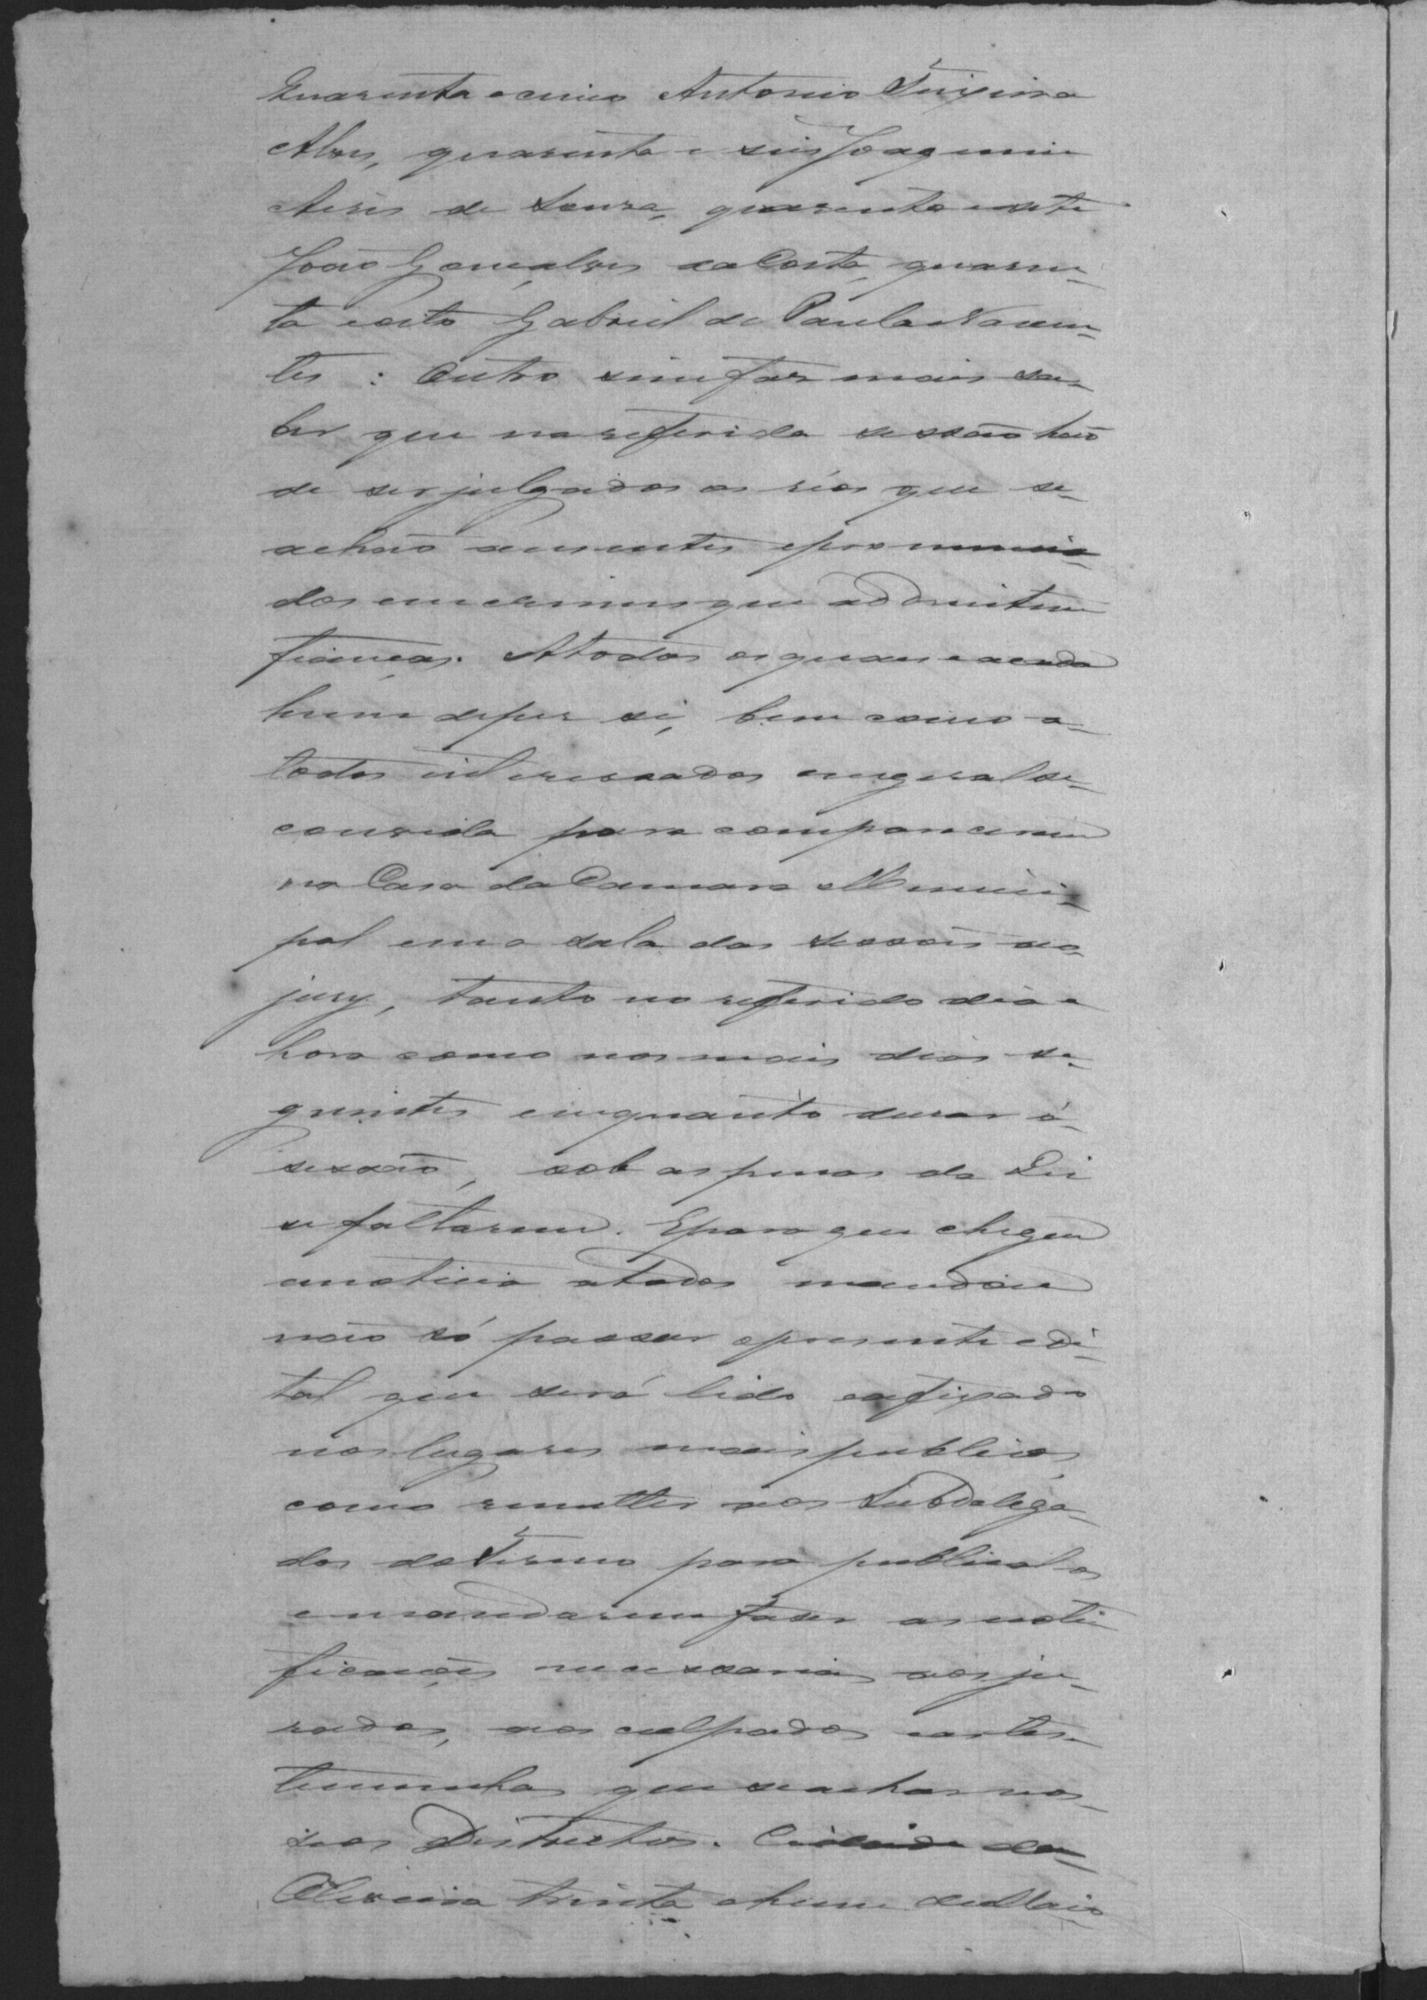 Quarenta e cinco Antonio Teixeira
Alves, quarenta e seis Joaquim
Aires de Souza, quarenta e sete
João Gonçalves da Costa, quaren-
ta e oito Gabriel de Paula Navan-
tes: Outro sim faz mais sa-
ber que na referida sessão hão
de ser julgados os réos que se-
achão ausentes e pronuncia-
dos em crimes que admittem
fianças. A todos os quaes e a cada
hum de per si, bem como a-
todos interessados em geral se-
convida para comparecerem
na Casa da Camara Munici-
pal em a sala das sessões do-
jury, tanto no referido dia e
hora como nos mais dias se-
guintes emquanto durar á-
sessão, sob as penas da Lei
se faltarem. E para que chegue
a noticia a todos mandou
não só passar o presente edi-
tal que será lido e affixado
nos lugares mais publicos,
como remetter aos Subdelega-
dos do Termo para publical os
e mandarem fazer as noti
ficações necessarias aos ju-
rados, aos culpados e as tes-
temunhas que se achar nos-
seos Districtos. Cidade da-
Oliveira trinta e hum de Maio